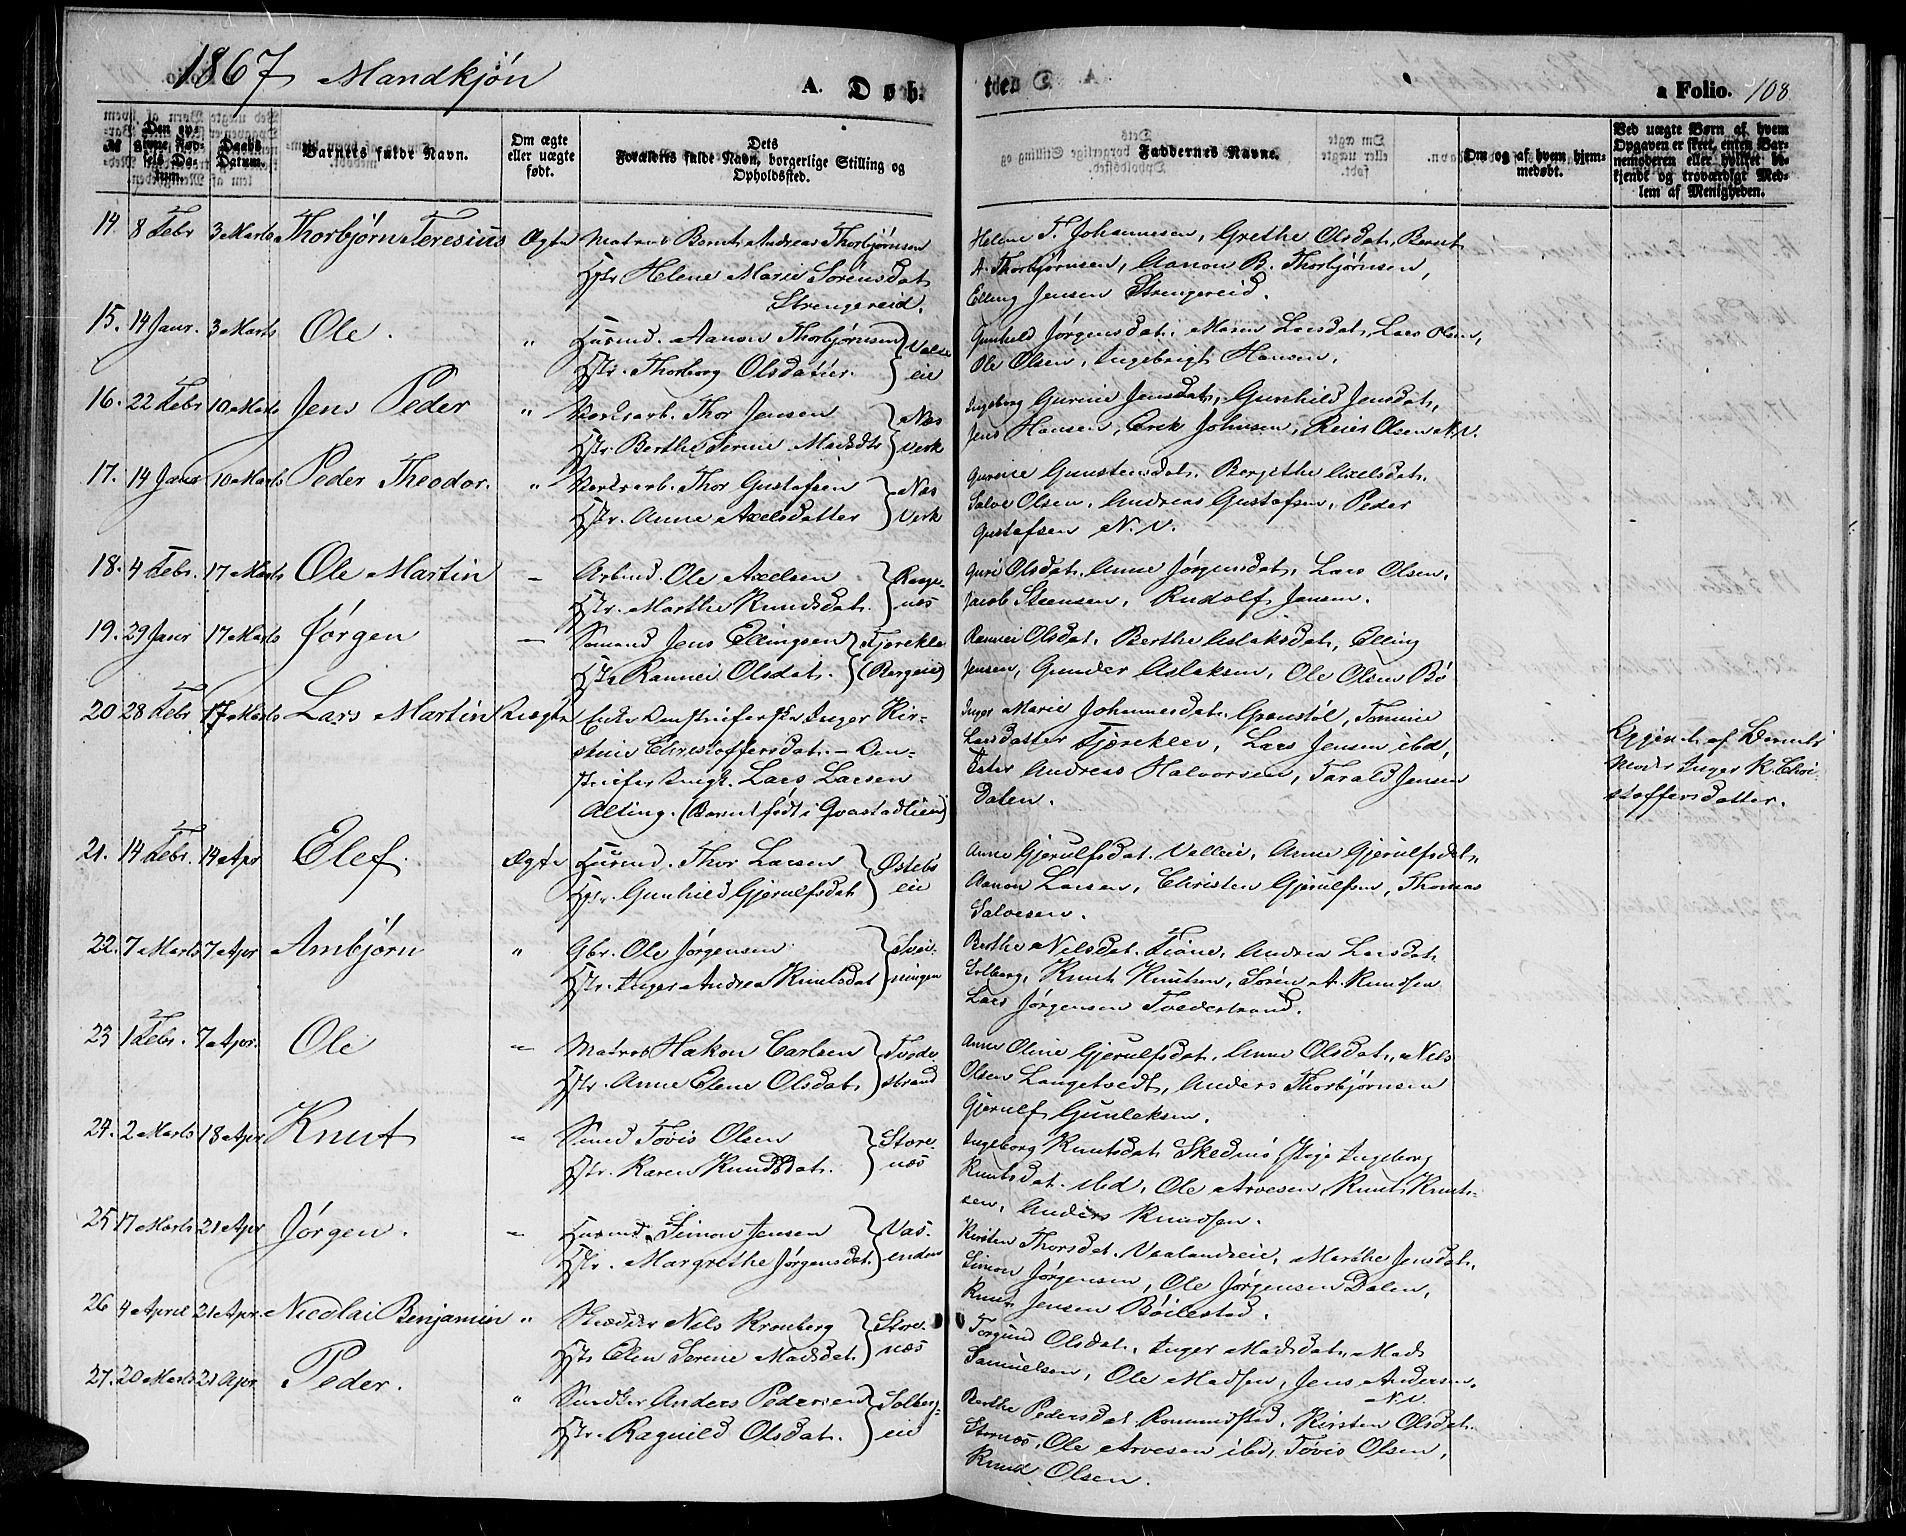 1867 Mandkjøn
A. Døb-
te.
a Folio. 108
№
Den opgivne Fødsels Datum.
Daabs Datum.
Barnets fulde Navn.
Om ægte eller uægte født.
Dets Forældres fulde Navn, borgerlige Stilling og Opholdssted.
Faddernes Navne.
Om og af hvem hjemmedøbt.
Ved uægte Børn af hvem Opgaven er skeet, enten Barnemoderen eller hvilket bekjendt og troværdigt Medlem af Menigheden.
14. 8 Febr 3 Marts Thorbjørn Teresius Ægte Matros Bernt Andreas Thorbjørnsen
Hstr Helene Marie Sørensdat.
Strengereid.
Helene T. Johannesen, Grethe Olsdat, Bernt
A. Thorbjørnsen, Aanon B. Thorbjørnsen,
Elling Jensen Strengereid.
15. 14 Janr. 3 Marts Ole. " Husmd. Aanon Thorbjørnsen
Hstr. Thorborg Olsdatter.
Gunhild Jørgensdat. Maren Larsdat, Lars Olsen,
Ole Olsen, Ingebrigt Hansen.
16. 22 Febr 10 Marts Jens Peder " Verksarb. Thor Jensen } Næs
Hstr. Berthe Serine Madsdtr } Verk
Ingeborg Gurine Jensdat, Gunhild Jensdat,
Jens Hansen, Erik Johnsen, Reier Olsen N.V.
17. 14 Janr 10 Marts Peder Theodor. " Verksarb. Thor Gustafsen } Næs
Hstr. Anne Axelsdatter } Verk
Gurine Gunstensdat. Bergithe Axelsdat.
Salve Olsen, Andreas Gustafsen, Peder
Gustafsen N.V.
18. 4 Febr. 17 Marts Ole Martin – Arbmd. Ole Axelsen
Hstr. Marthe Knudsdat.
Guri Olsdat. Anne Jørgensdat, Lars Olsen,
Jacob Steensen, Rudolf Jensen.
19. 29 Janr 17 Marts Jørgen – Sømand Jens Ellingsen
Hstr Rannei Olsdat.
Rannei Olsdat. Berthe Aslaksdat, Elling
Jensen, Gunder Aslaksen, Ole Olsen Bø
20 28 Febr 17 Marts Lars Martin Uægte Enke Inger Kir-
stine Christoffersdat. –
Lars Larsen
Alting. (Barnet født i Qvastadlien)
Inger Marie Johannesdat. Grønstøl, Tomine
Larsdatter Tjæreklev, Lars Jensen ibd,
Andreas Halvorsen, Tarald Jensen
Dalen.
Opgivet af Barnets
Moder Inger K. Chri-
stoffersdatter.
21. 14 Febr. 14 Apr Elef. Ægte Husmd. Thor Larsen } Østebø
Hstr. Gunhild Gjerulfsdat } eie
Anne Gjerulfsdat. Valleie, Anne Gjerulfsdat.
Aanon Larsen, Christen Gjerulfsen, Thomas
Salvesen.
22. 7 Marts 7 Apr Ambjørn " Gbr. Ole Jørgensen } Svei-
Hstr. Inger Andrea Knutsdat } ningen
Berthe Nilsdat. Fiane, Andrea Larsdat.
Solberg, Knut Knutsen, Søren A. Knudsen
Lars Jørgensen Tvedestrand.
23 1 Febr. 7 Apr. Ole " Matros Hakon Carlsen } Tvede
Hstr. Anne Elene Olsdat. } strand
Anne Oline Gjerulfsdat, Anne Olsdat, Nils
Olsen Langetvedt, Anders Thorbjørnsen
Gjerulf Gunleksen.
24. 2 Marts 18 Apr Knut " Smed Tovis Olsen } Store
Hstr. Karen Knudsdat. } næs
Ingeborg Knutsdat. Skedmo, Pige Ingeborg
Knutsdat. ibd, Ole Arvesen, Knut Knut-
sen, Anders Knudsen.
25 17 Marts 21 Apr Jørgen. – Husmd. Simon Jensen } Vas-
Hstr. Margrethe Jørgensdat. } enden
Kirsten Thorsdat. Vaalandseie, Marthe Jensdat.,
Simon Jørgensen, Ole Jørgensen Dalen,
Knut Jensen Bøilestad.
26 4 April 21 Apr. Nicolai Benjamin " Skrædder Nils Kronberg } Store-
Hstr Elen Serine Madsdat. } næs
Torgund Olsdat. Inger Madsdat, Mads
Samuelsen, Ole Madsen, Jens Andersen.
N.V.
27. 20 Marts 21 Apr Peder. " Snedker Anders Pedersen } Solberg-
Hstr. Ragnild Olsdat. } eie
Berthe Pedersdat. Rommidstad, Kirsten Olsdat.
Stornæs, Ole Arvesen ibd, Tovis Olsen,
Knud Olsen.